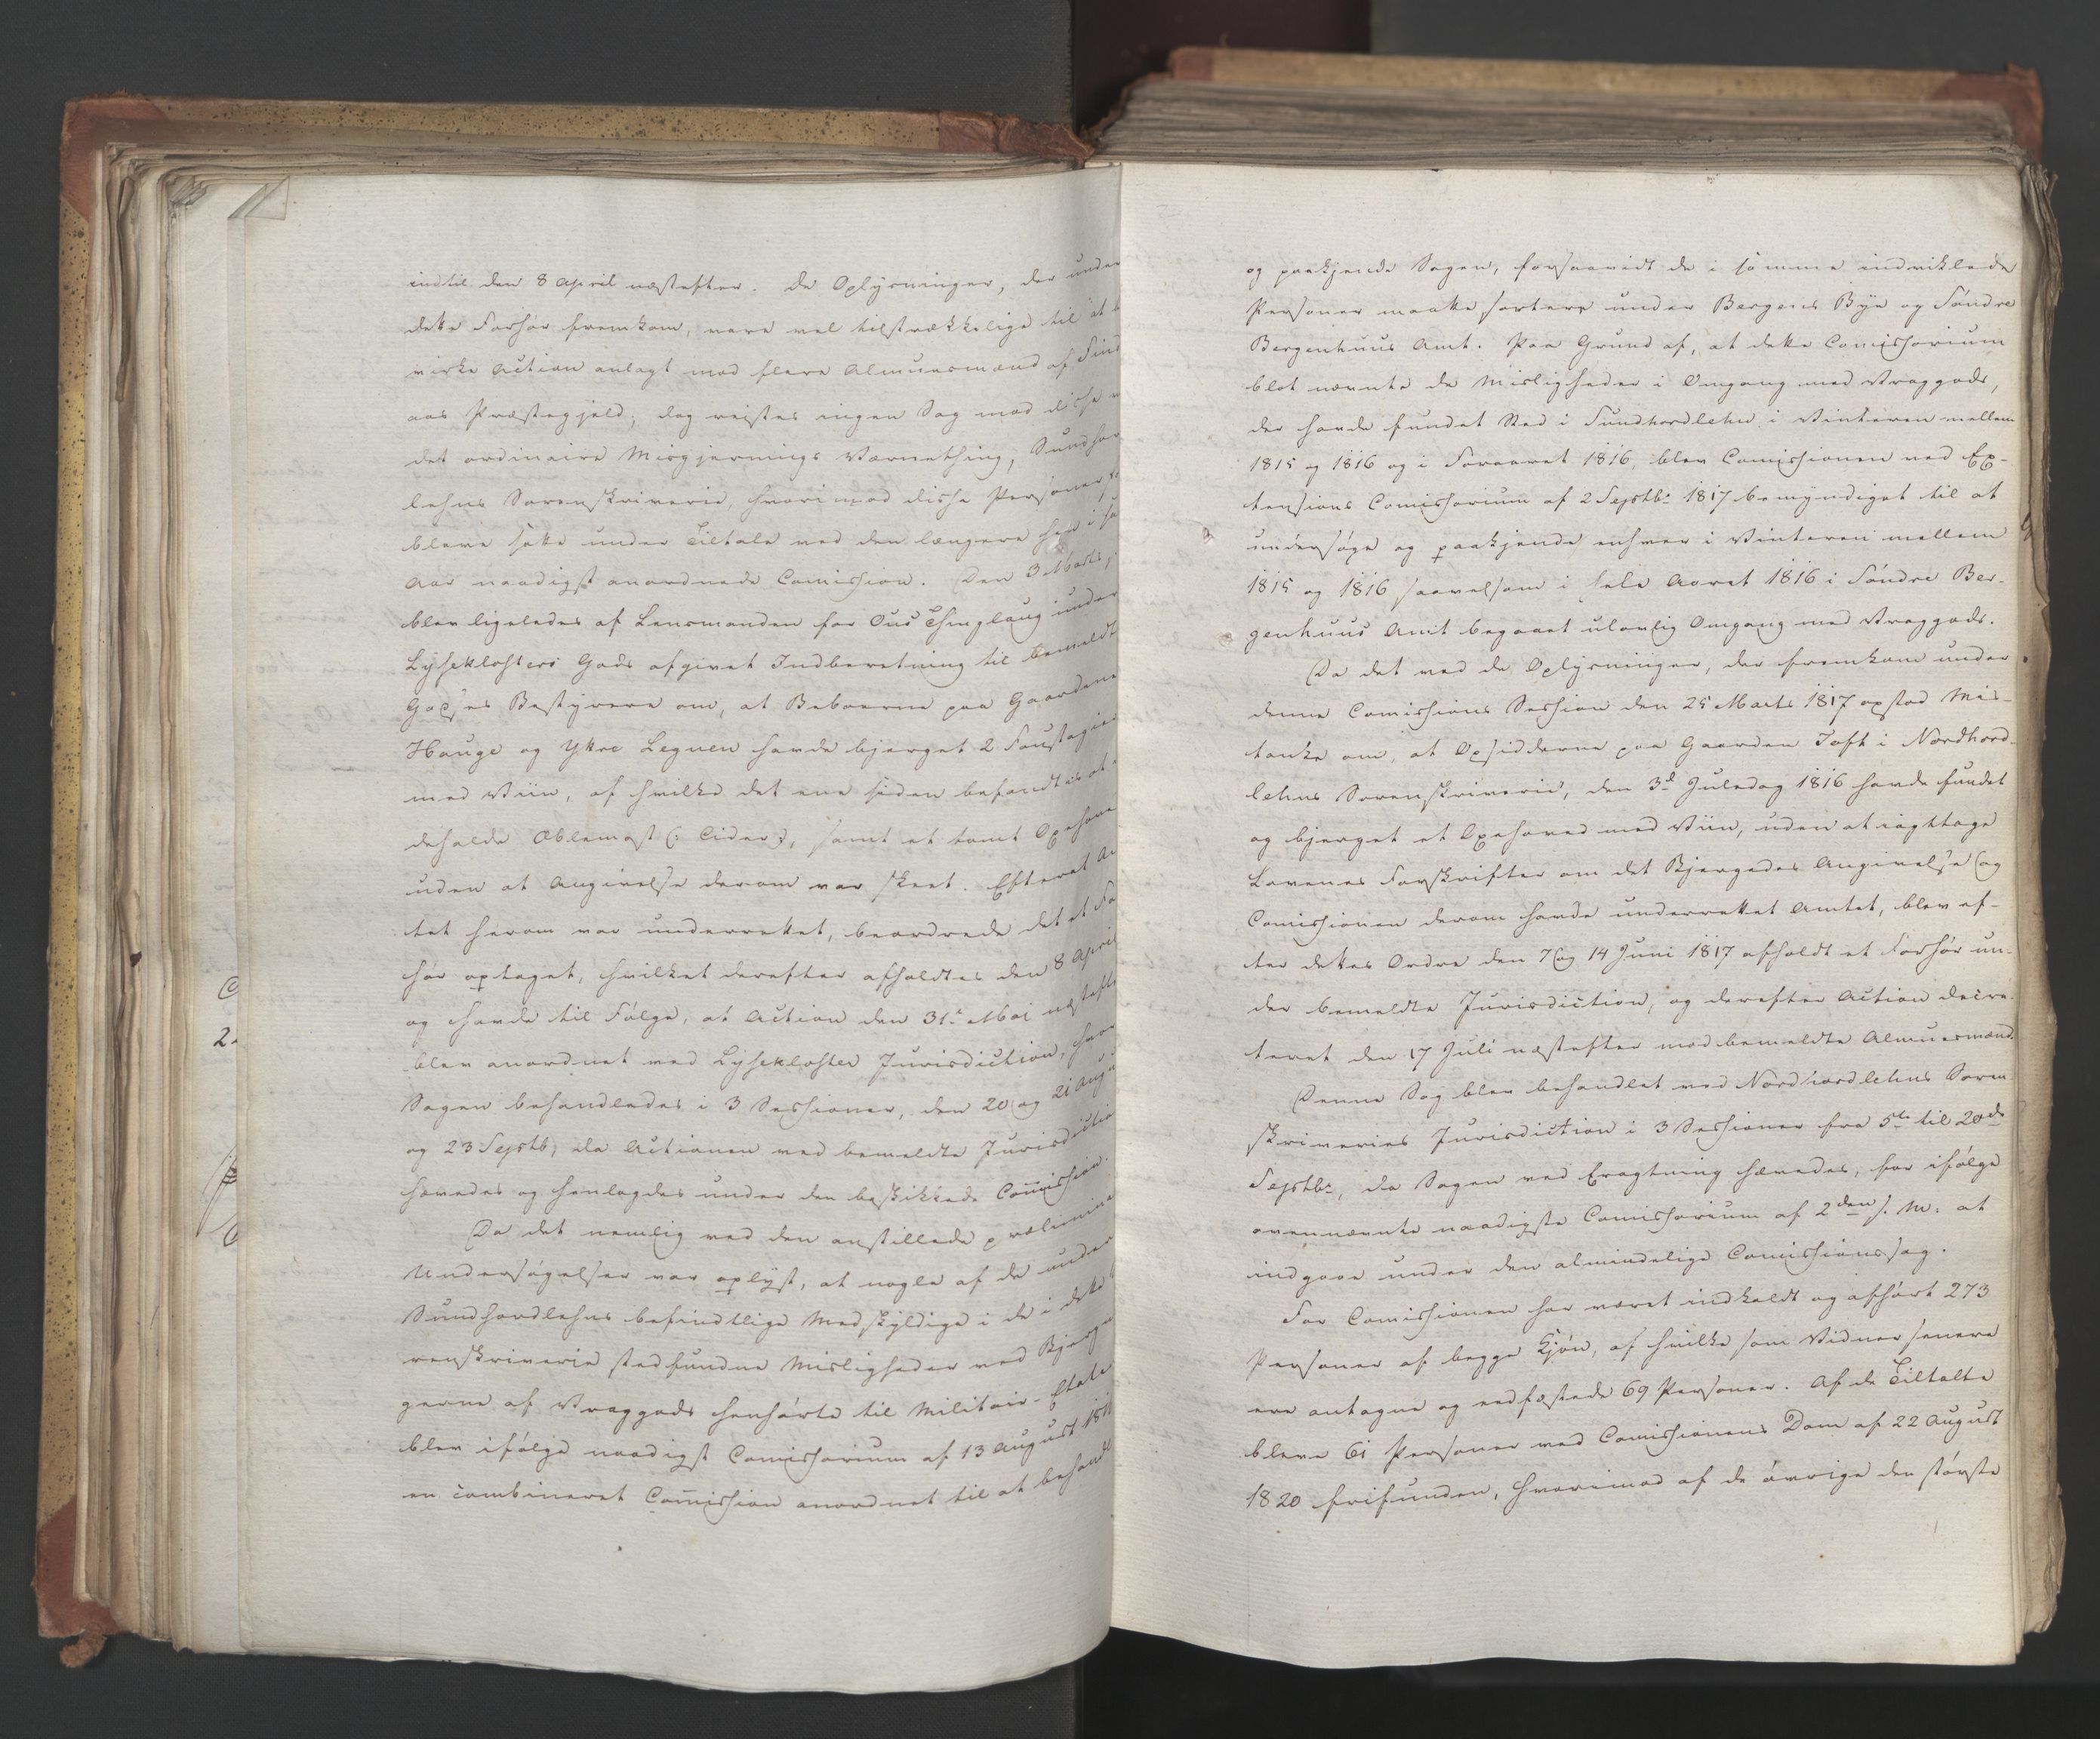 indtil den 8 April næstefter. De Oplysninger, der under
dette Forhør fremkom, vare vel tilstrækkelige til at
virke Action anlagt mod flere Almuesmænd af Find
aas Præstegjeld; dog reistes ingen Sag mod disse
det ordinaire Misgjernings Værnething, Sundhor
lehns Sorenskriverie, hvorimod disse Personer
bleve satte under Tiltale ved den længere hen i
Aar naadigst anordnede Comission. Den 3 Marts,
blev ligeledes af Lensmanden for Ous Thinglaug under
Lyseklosters Gods afgivet Indberetning til bemeldt
Godses Bestyrere om, at Beboerne paa Gaardene
Hauge og Ytre Legnen havde bjerget 2 Foustagier
med Viin, af hvilke det ene siden befandtes at
deholde Æblemost (: Cider), samt et tomt Oxehove
uden at Angivelse derom var skeet. Efterat A
tet herom var underrettet, beordrede det et Fo
hør optaget, hvilket derefter afholdtes den 8 April
og havde til Følge, at Action den 31te Mai næstefte
blev anordnet ved Lysekloster Jurisdiction, hvor
Sagen behandledes i 3 Sessioner, den 20 og 21 Aug
og 23 Septb, da Actionen ved bemeldte Jurisdictio
hævedes og henlagdes under den beskikkede Comission.
Da det nemlig ved den anstillede prælimina
Undersøgelser var oplyst, at nogle af de under
Sundhordlehns befindtlige Medskyldige i de i dette
renskriverie stedfundne Misligheder ved Bjerg
gerne af Vraggods henhørte til Militair-Etate
blev ifølge naadigst Comissorium af 13 August 181
en combineret Comission anordnet til at behandl
og paakjende Sagen, forsaavidt de i samme indviklede
Personer maatte sortere under Bergens Bye og Søndre
Bergenhuus Amt. Paa Grund af, at dette Comissorium
blot nævnte de Misligheder i Omgang med Vraggods,
der havde fundet Sted i Sundhordlehn i Vinteren mellem
1815 og 1816 og i Foraaret 1816, blev Comissionen ved Ex-
tensions Comissorium af 2 Septbr 1817 bemyndiget til at
undersøge og paakjende enhver i Vinteren mellem
1815 og 1816 saavelsom i hele Aaret 1816 i Søndre Ber-
genhuus Amt begaaet ulovlig Omgang med Vraggods.
Da det ved de Oplysninger, der fremkom under
denne Comissions Session den 25 Marts 1817 opstod Mis-
tanke om, at Opsidderne paa Gaarden Toft i Nordhord-
lehns Sorenskriverie, den 3d Juledag 1816 havde fundet
og bjerget et Oxehoved med Viin, uden at iagttage
Lovenes Forskrifter om det Bjergedes Angivelse og
Comissionen derom havde underrettet Amtet, blev ef-
ter dettes Ordre den 7 og 14 Juni 1817 afholdt et Forhør un-
der bemeldte Jurisdiction, og derefter Action decre-
teret den 17 Juli næstefter mod bemeldte Almuesmænd.
Denne Sag blev behandlet ved Nordhordlehns Soren-
skriveries Jurisdiction i 3 Sessioner fra 5te til 20de
Septbr, da Sagen ved Eragtning hævedes, for ifølge
ovennævnte naadigste Comissorium af 2den s. M. at
indgaae under den almindelige Comissionssag.
For Comissionen har været indkaldt og afhørt 273
Personer af begge Kjøn, af hvilke som Vidner senere
ere antagne og eedfæstede 69 Personer. Af de Tiltalte
bleve 61 Personer ved Comissionens Dom af 22 August
1820 frifunden, hvorimod af de øvrige den største